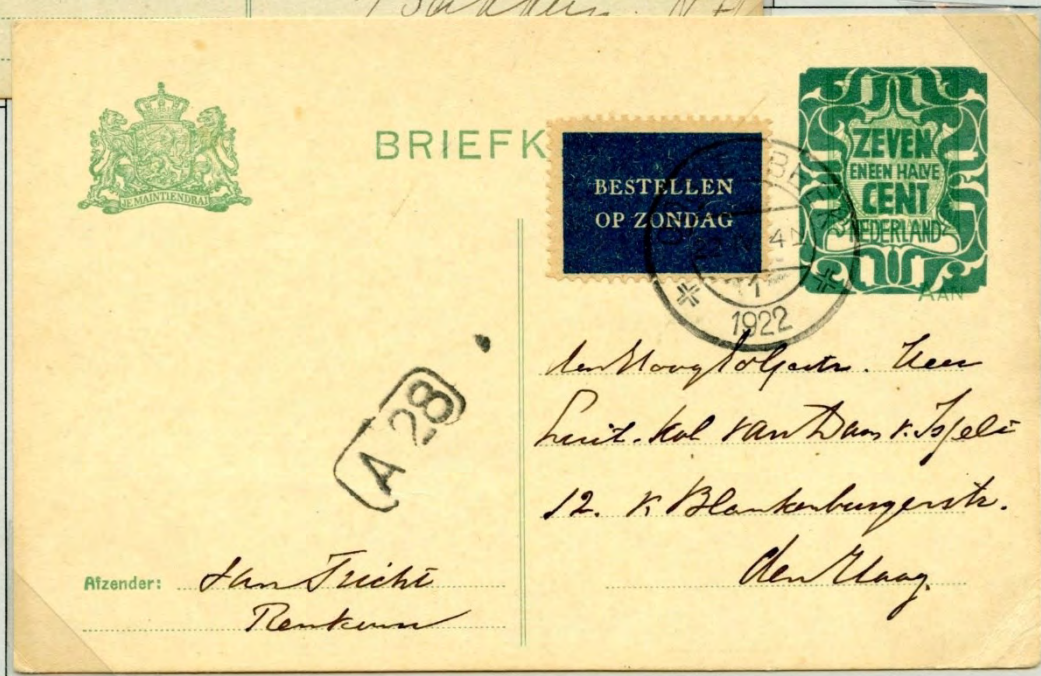 JE MAINTIENDRAI
BRIEFK
BESTELLEN
OP ZONDAG
ZEVEN
EN EEN HALVE
CENT
NEDERLAND
AAN
4 N
1
1922
A 28
Heer
Luit. Kol van Dam v. Isselt
12. v. Blankenburgerstr.
den Haag.
Afzender: Jan Tricht
Renkum